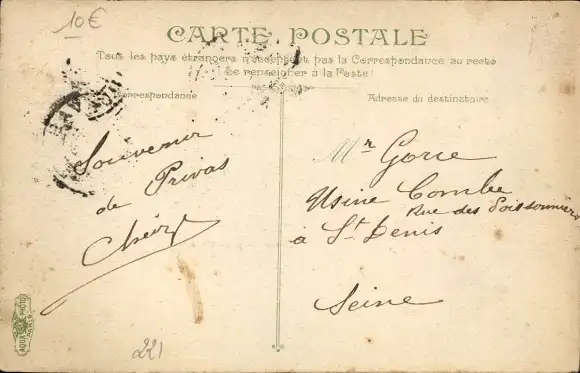 10€
CARTE POSTALE
Tous les pays étrangers n'acceptent pas la Correspondance au recto
(Se renseigner à la Poste)
Correspondance
Adresse du destinataire
Souvenir
de Privas
Mr Gorce
Usine Combe
Rue des Poissonniers
à St Denis
Seine
AQUA PHOTO
PARIS
221